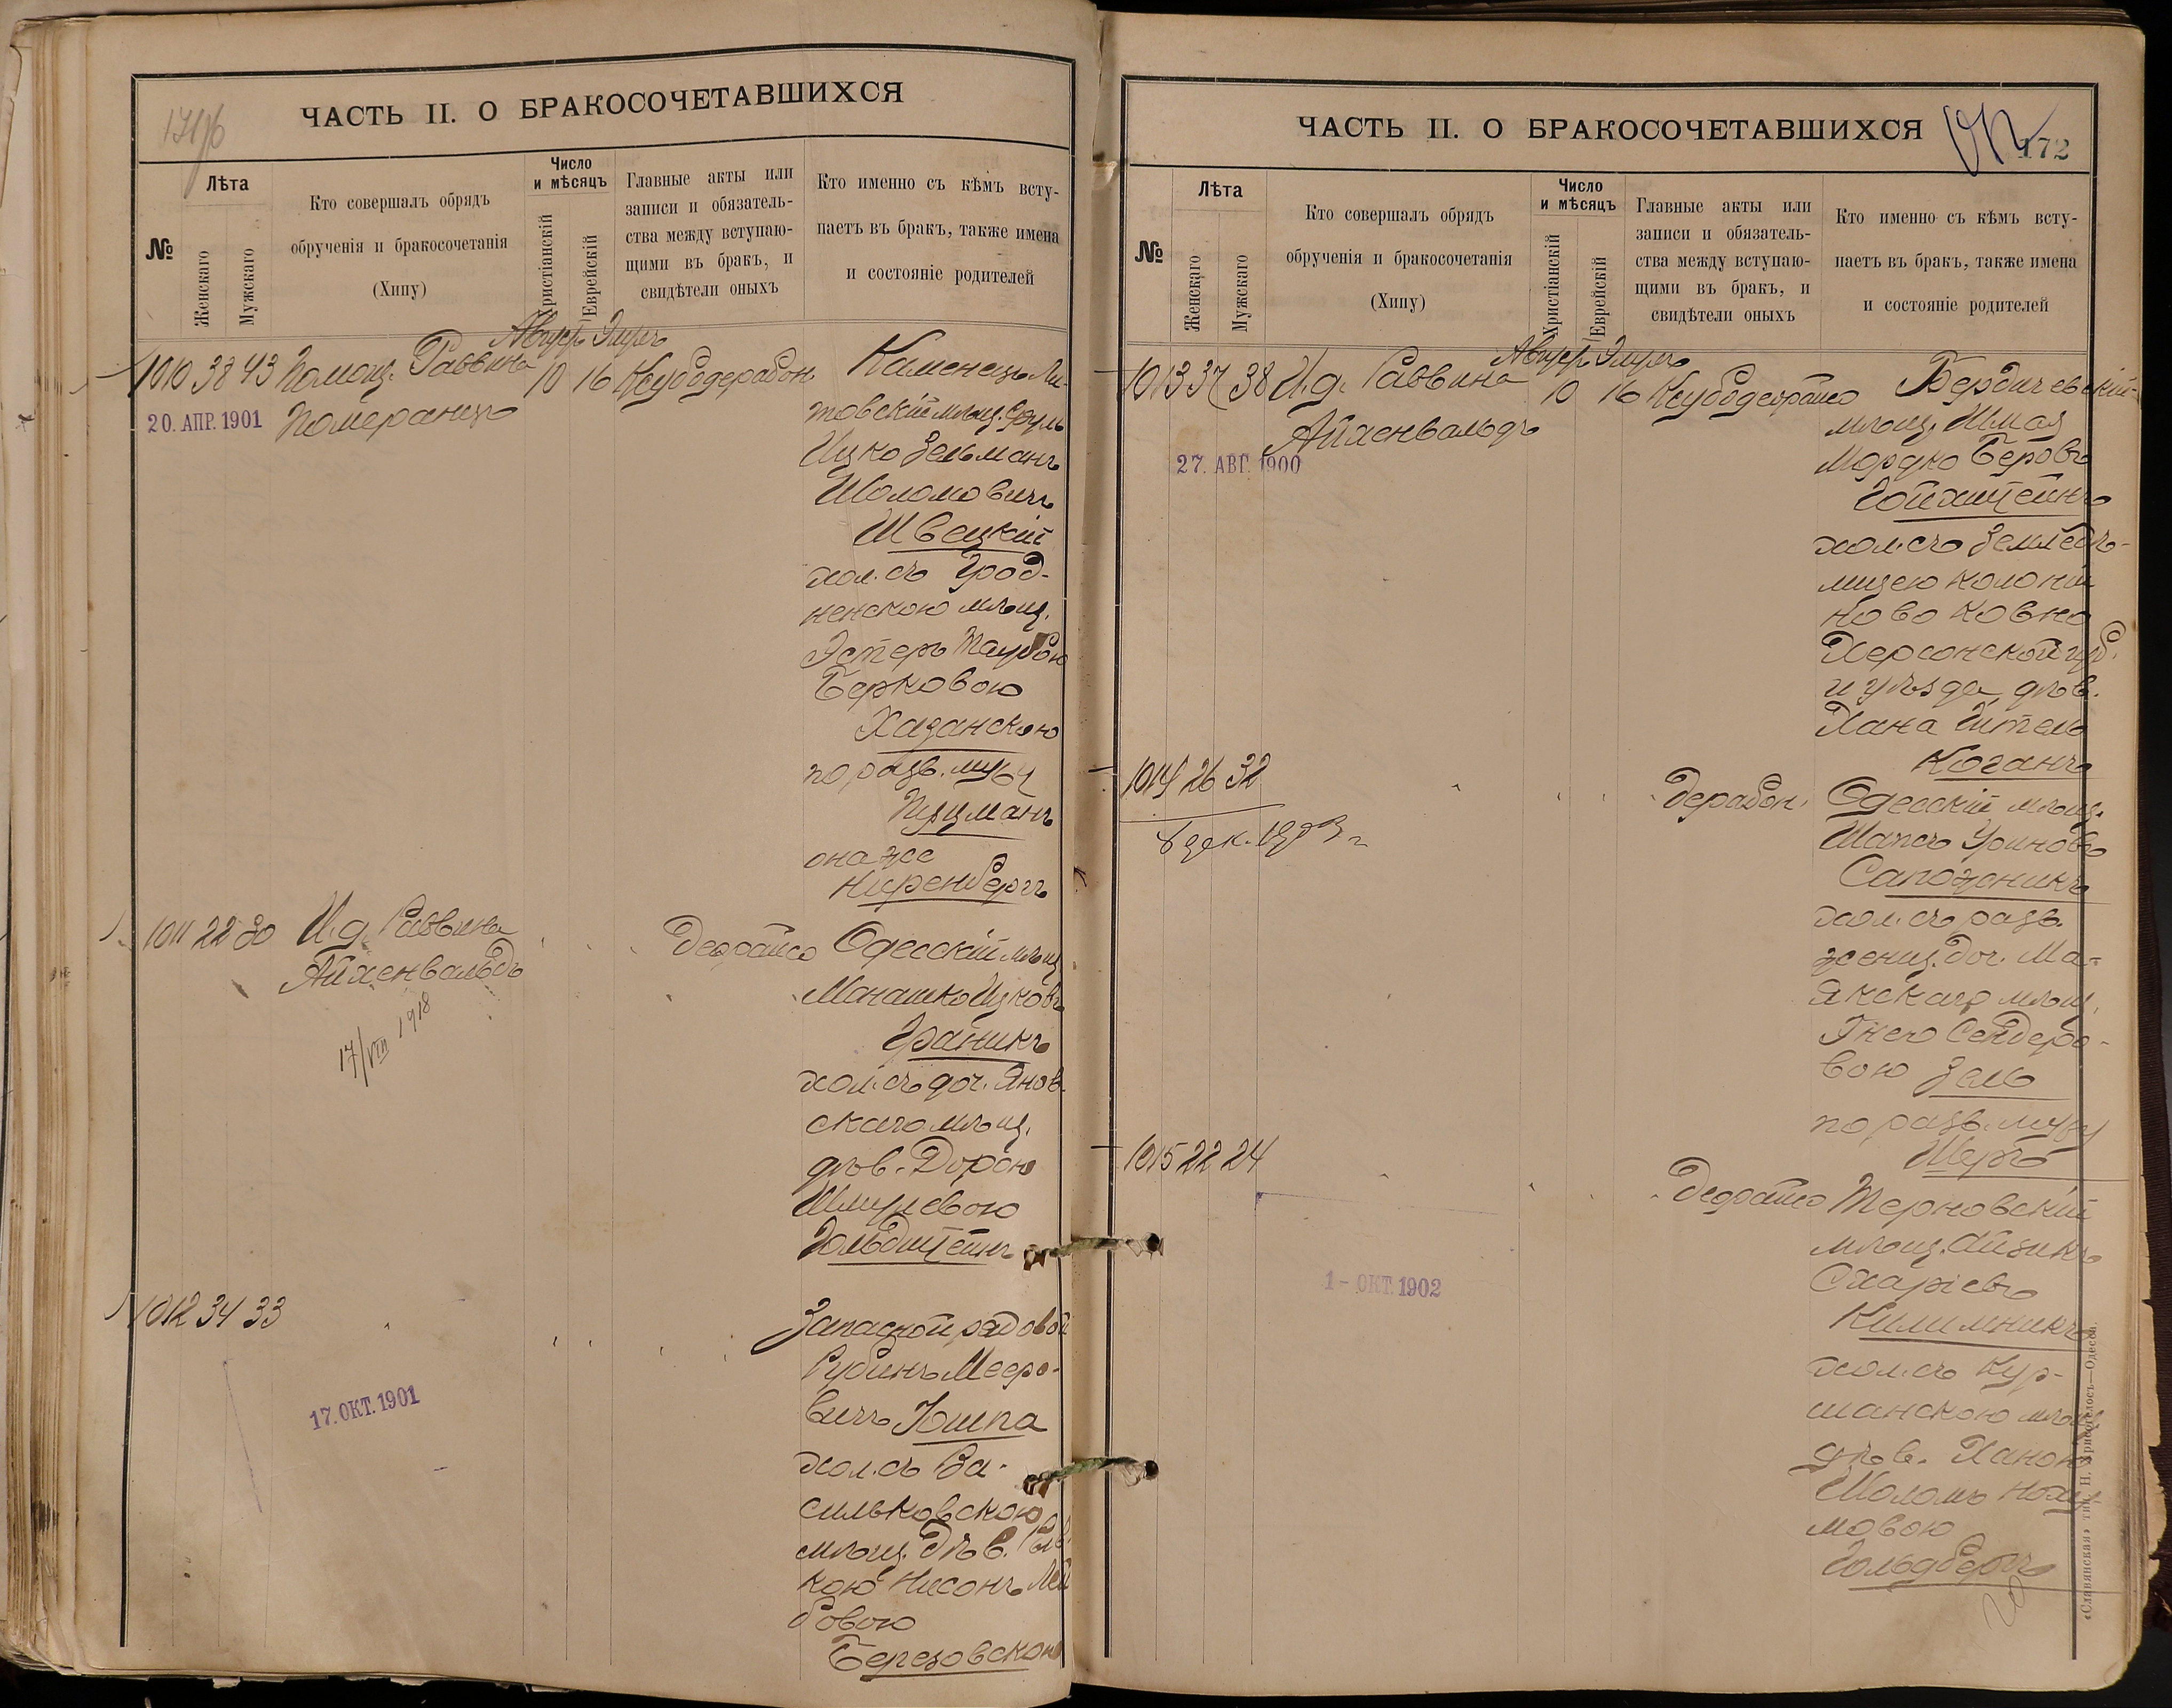 ЧАСТЬ II. О БРАКОСОЧЕТАВШИХСЯ
№
Лѣта
Женскаго
Мужскаго
Кто совершалъ обрядъ
обрученія и бракосочетанія
(Хипу)
Число
и мѣсяцъ
Христіанскій
Еврейскій
Главные акты или
записи и обязатель-
ства между вступаю-
щими въ бракъ, и
свидѣтели оныхъ
Кто именно съ кѣмъ всту-
паетъ въ бракъ, также имена
и состояніе родителей
1010 38 43 Помощ. Раввина
Померанцъ
20. АПР. 1901
10 16
Каменецъ Ли-
товскій мѣщ.
Ицко Зельманъ
Шоломовичъ
Швецкій
хол. съ Грод-
ненскою мѣщ.
Эстеръ Таубою
Берковою
Хазанскою
по разв. мужу
онаже
Ниренбергъ
1011 22 30 И.д. Раввина
Айхенвальдъ
17/VIII 1918
Одесскій мѣщ.
Манашко Ицковъ
Граникъ
хол. съ доч. Янов-
скаго мѣщ.
дѣв. Дорою
Шмулевою
Гольдштейнъ
1012 34 33
17. ОКТ. 1901
Запасной рядовой
Рубинъ Мееро-
вичъ Юшпа
хол. съ Ва-
сильковскою
мѣщ. дѣв.
кою Нисонъ Лей
бовою
Березовскою
ЧАСТЬ II. О БРАКОСОЧЕТАВШИХСЯ
172
№
Лѣта
Женскаго
Мужскаго
Кто совершалъ обрядъ
обрученія и бракосочетанія
(Хипу)
Число
и мѣсяцъ
Христіанскій
Еврейскій
Главные акты или
записи и обязатель-
ства между вступаю-
щими въ бракъ, и
свидѣтели оныхъ
Кто именно съ кѣмъ всту-
паетъ въ бракъ, также имена
и состояніе родителей
1013 37 38 И.д. Раввина
Айхенвальдъ
27. АВГ. 1900
10 16
Бердичевскій
мѣщ. Шмая
Мордко Беровъ
Гойхштейнъ
хол. съ Землѣдѣ-
лицею колоніи
Ново Ковно
Херсонской губ.
и уѣзда, дѣв.
Хана Гитель
Коганъ
1014 26 32
8 дек. 1903 г.
Одесскій мѣщ.
Шапсъ Уриновъ
Сапожникъ
хол. съ разв.
женщ. доч. Ма-
якскаго мѣщ.
Гнею Сендеро-
вою Зель
по разв. мужу
Шеръ
1015 22 24
1 - ОКТ. 1902
Терновскій
мѣщ. Айзикъ
Килимникъ
хол. съ Кур-
шанскою мѣщ.
дѣв. Ханою
мовою
Гольдбергъ